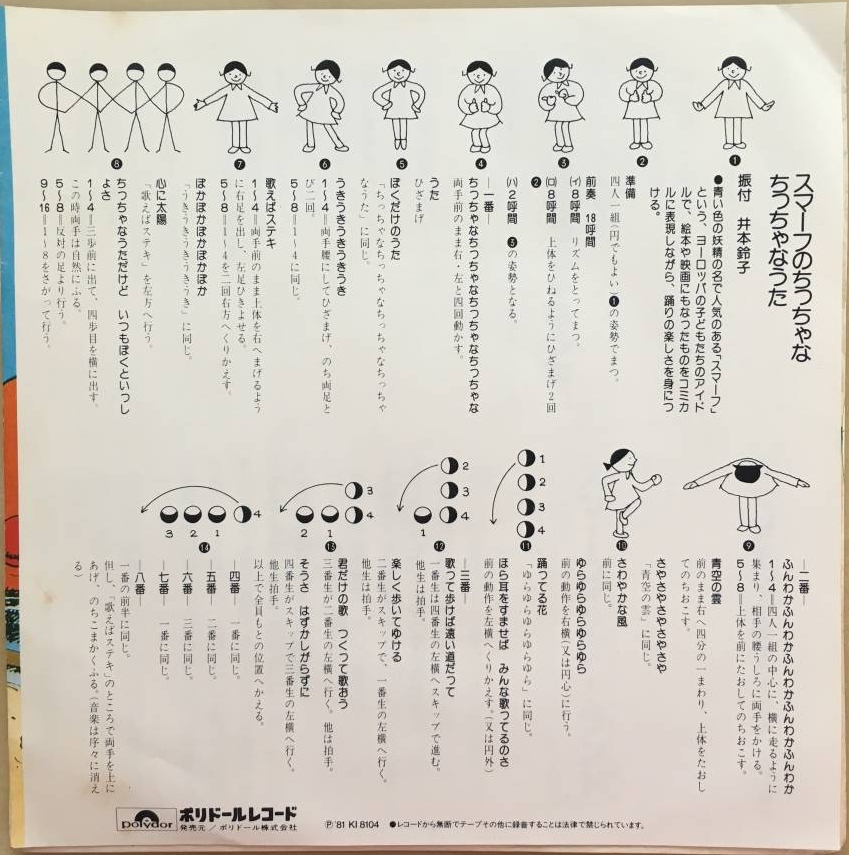 スマーフのちっちゃな
ちっちゃなうた
振付　井本鈴子
●青い色の妖精の名で人気のある「スマーフ」
という、ヨーロッパの子どもたちのアイド
ルで、絵本や映画にもなったものをコミカ
ルに表現しながら、踊りの楽しさを身につ
ける。
❶
❷
❸
❹
❺
❻
❼
❽
準備
四人一組(円でもよい)❶の姿勢でまつ。
前奏　18呼間
(イ)8呼間　リズムをとってまつ。
(ロ)8呼間　上体をひねるようにひざまげ2回
❷
(ハ)2呼間　❸の姿勢となる。
―一番―
ちっちゃなちっちゃなちっちゃなちっちゃな
両手前のまま右・左と四回動かす。
うた
ひざまげ
ぼくだけのうた
「ちっちゃなちっちゃなちっちゃなちっちゃ
なうた」に同じ。
うきうきうきうきうき
1〜4＝両手腰にしてひざまげ、のち両足と
び二回。
5〜8＝1〜4に同じ。
歌えばステキ
1〜4＝両手前のまま上体を右へまげるよう
に右足を出し、左足ひきよせる。
5〜8＝1〜4を二回右方へくりかえす。
ぽかぽかぽかぽかぽか
「うきうきうきうきうき」に同じ。
心に太陽
「歌えばステキ」を左方へ行う。
ちっちゃなうただけど　いつもぼくといっし
よさ
1〜4＝三歩前に出て、四歩目を横に出す。
この時両手は自然にふる。
5〜8＝反対の足より行う。
9〜16＝1〜8をさがって行う。
❾
❿
⓫
1
2
3
4
⓬
2
3
1
4
⓭
3
2
1
4
⓮
3
2
1
4
―二番―
ふんわかふんわかふんわかふんわかふんわか
1〜4＝四人一組の中心に、横に走るように
集まり、相手の腰うしろに両手をかける。
5〜8＝上体を前にたおしてのちおこす。
青空の雲
前のまま右へ四分の一まわり、上体をたおし
てのちおこす。
さやさやさやさやさや
「青空の雲」に同じ。
さわやかな風
前に同じ。
ゆらゆらゆらゆらゆら
前の動作を右横(又は円心)に行う。
踊ってる花
「ゆらゆらゆらゆらゆら」に同じ。
ほら耳をすませば　みんな歌ってるのさ
前の動作を左横へくりかえす。(又は円外)
―三番―
歌って歩けば遠い道だって
一番生は四番生の左横へスキップで進む。
他生は拍手。
楽しく歩いてゆける
二番生がスキップで、一番生の左横へ行く。
他生は拍手。
君だけの歌　つくって歌おう
三番生が二番生の左横へ行く。他は拍手。
そうさ　はずかしがらずに
四番生がスキップで三番生の左横へ行く。
他生拍手。
以上で全員もとの位置へかえる。
―四番―　一番に同じ。
―五番―　二番に同じ。
―六番―　三番に同じ。
―七番―　一番に同じ。
―八番―
一番の前半に同じ。
但し、「歌えばステキ」のところで両手を上に
あげ、のちこまかくふる。(音楽は序々に消え
る)
polydor
ポリドールレコード
発売元／ポリドール株式会社
Ⓟ '81 KI 8104　●レコードから無断でテープその他に録音することは法律で禁じられています。